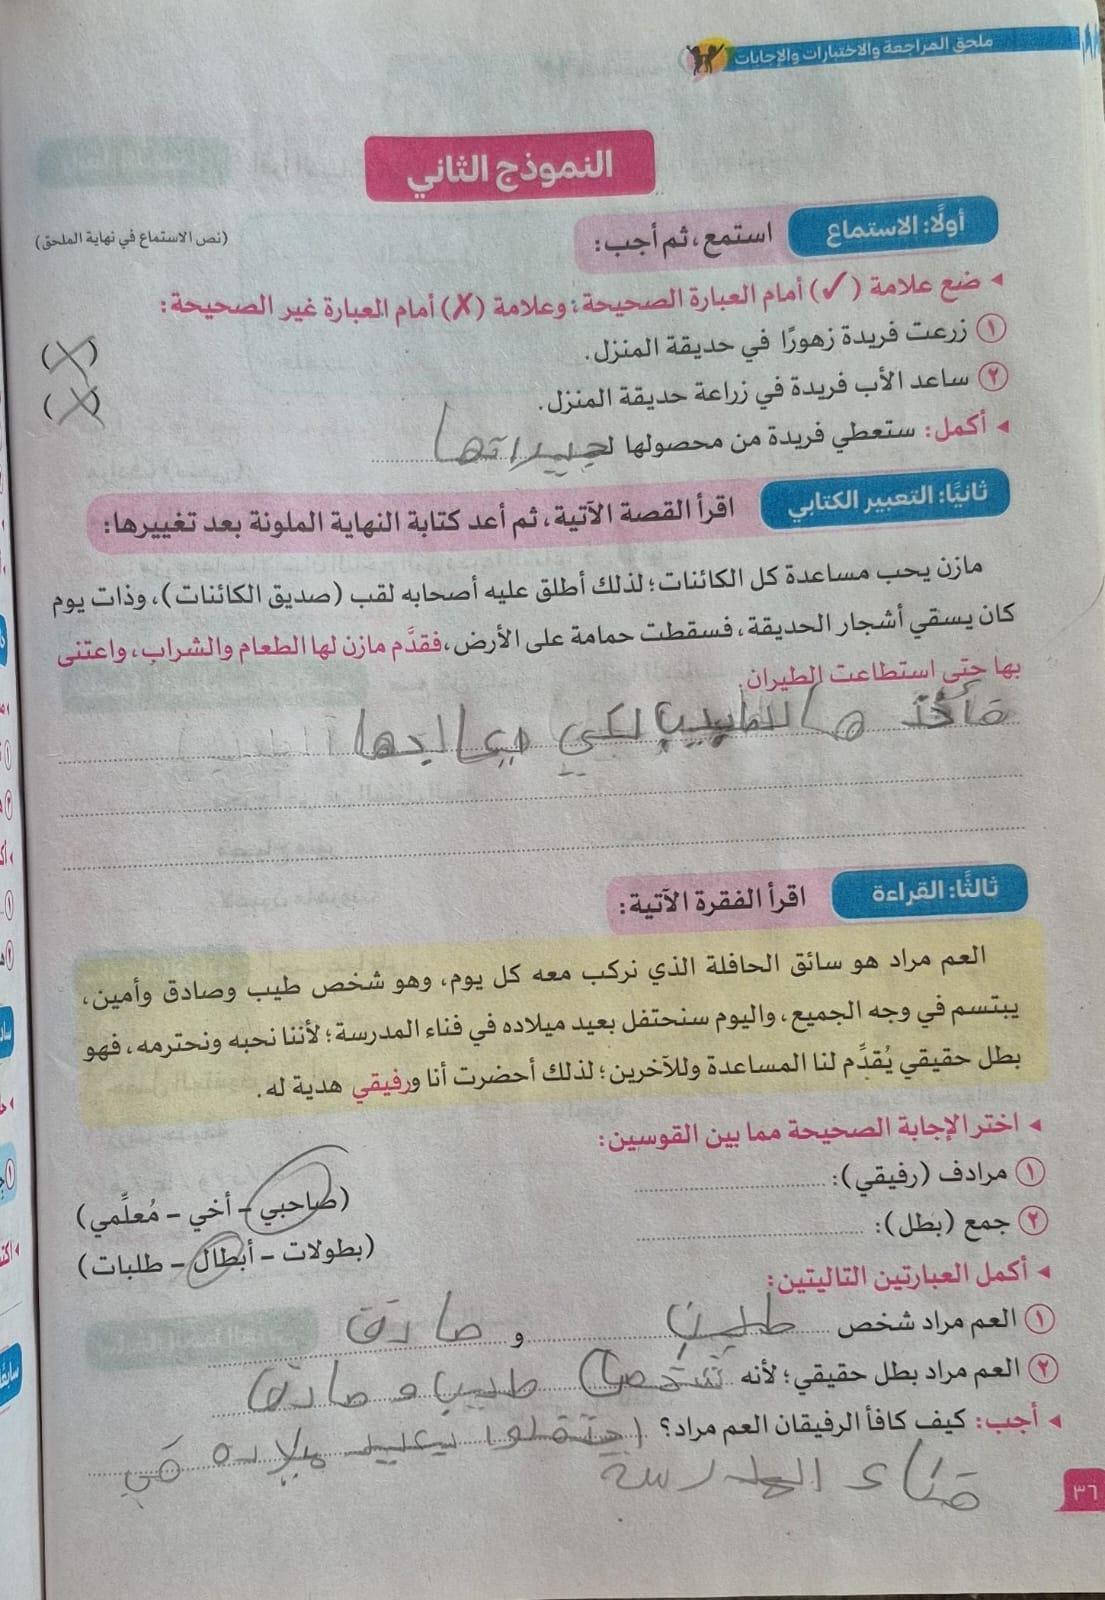 ملحق المراجعة والاختبارات والإجابات
النموذج الثاني
أولًا: الاستماع استمع، ثم أجب:
(نص الاستماع في نهاية الملحق)
◂ ضع علامة (✓) أمام العبارة الصحيحة؛ وعلامة (✗) أمام العبارة غير الصحيحة:
١ زرعت فريدة زهورًا في حديقة المنزل. (X)
٢ ساعد الأب فريدة في زراعة حديقة المنزل. (X)
◂ أكمل: ستعطي فريدة من محصولها لجيراتها
ثانيًا: التعبير الكتابي اقرأ القصة الآتية، ثم أعد كتابة النهاية الملونة بعد تغييرها:
مازن يحب مساعدة كل الكائنات؛ لذلك أطلق عليه أصحابه لقب (صديق الكائنات)، وذات يوم
كان يسقي أشجار الحديقة، فسقطت حمامة على الأرض، فقدَّم مازن لها الطعام والشراب، واعتنى
بها حتى استطاعت الطيران.
فأخذ ها للطبيب لكي يعالجها
ثالثًا: القراءة اقرأ الفقرة الآتية:
العم مراد هو سائق الحافلة الذي نركب معه كل يوم، وهو شخص طيب وصادق وأمين،
يبتسم في وجه الجميع، واليوم سنحتفل بعيد ميلاده في فناء المدرسة؛ لأننا نحبه ونحترمه، فهو
بطل حقيقي يُقدِّم لنا المساعدة وللآخرين؛ لذلك أحضرت أنا ورفيقي هدية له.
◂ اختر الإجابة الصحيحة مما بين القوسين:
١ مرادف (رفيقي): (صاحبي – أخي – مُعلِّمي)
٢ جمع (بطل): (بطولات – أبطال – طلبات)
◂ أكمل العبارتين التاليتين:
١ العم مراد شخص طيب و صادق
٢ العم مراد بطل حقيقي؛ لأنه شخص طيب و صادق
◂ أجب: كيف كافأ الرفيقان العم مراد؟ احتفلوا بعيد ميلاده في
فناء المدرسة
٣٦